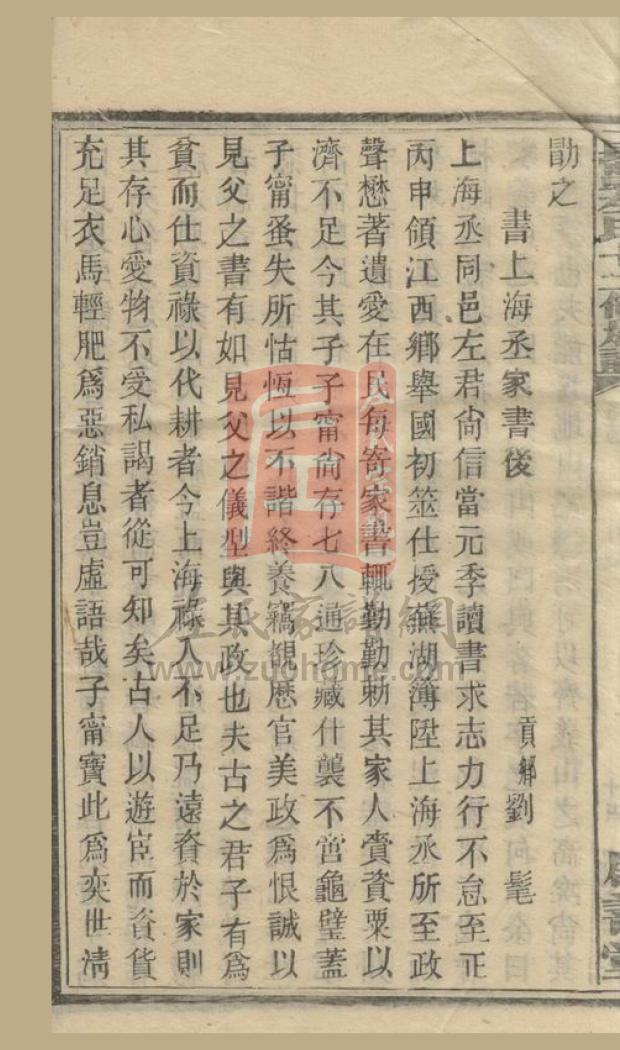 勖之
書上海丞家書後 貢鄉劉髦
上海丞同邑左君尙信當元季讀書求志力行不怠至正
丙申領江西鄉舉國初筮仕授蕪湖簿陞上海丞所至政
聲懋著遺愛在民每寄家書輒勤勤勑其家人賫資粟以
濟不足今其子子甯尙存七八通珍藏什襲不啻龜璧蓋
子甯蚤失所怙恆以不諧終養竊覩歷官美政爲恨誠以
見父之書有如見父之儀型與其政也夫古之君子有爲
貧而仕資祿以代耕者今上海祿入不足乃遠資於家則
其存心愛物不受私謁者從可知矣古人以遊宦而資貨
充足衣馬輕肥爲惡銷息豈虛語哉子甯寶此爲奕世淸
左氏家譜網
www.zuohome.com